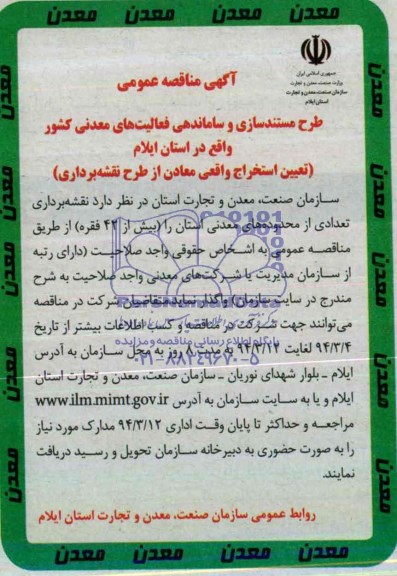 معدن معدن معدن معدن
جمهوری اسلامی ایران
وزارت صنعت، معدن و تجارت
سازمان صنعت، معدن و تجارت
استان ایلام
آگهی مناقصه عمومی
طرح مستندسازی و ساماندهی فعالیت‌های معدنی کشور
واقع در استان ایلام
(تعیین استخراج واقعی معادن از طرح نقشه‌برداری)
سازمان صنعت، معدن و تجارت استان در نظر دارد نقشه‌برداری
تعدادی از محدوده‌های معدنی استان را (بیش از ۴۴ فقره) از طریق
مناقصه عمومی به اشخاص حقوقی واجد صلاحیت (دارای رتبه
از سازمان مدیریت یا شرکت‌های معدنی واجد صلاحیت به شرح
مندرج در سایت سازمان) واگذار نماید. متقاضیان شرکت در مناقصه
می‌توانند جهت شرکت در مناقصه و کسب اطلاعات بیشتر از تاریخ
۹۴/۳/۴ لغایت ۹۴/۳/۱۲ به مدت روز به محل سازمان به آدرس
ایلام ـ بلوار شهدای نوریان ـ سازمان صنعت، معدن و تجارت استان
ایلام و یا به سایت سازمان به آدرس www.ilm.mimt.gov.ir
مراجعه و حداکثر تا پایان وقت اداری ۹۴/۳/۱۲ مدارک مورد نیاز
را به صورت حضوری به دبیرخانه سازمان تحویل و رسید دریافت
نمایند.
پایگاه اطلاع رسانی مناقصه و مزایده
۰۲۱-۸۸۳۴۹۶۷۰-۵
روابط عمومی سازمان صنعت، معدن و تجارت استان ایلام
معدن معدن معدن معدن